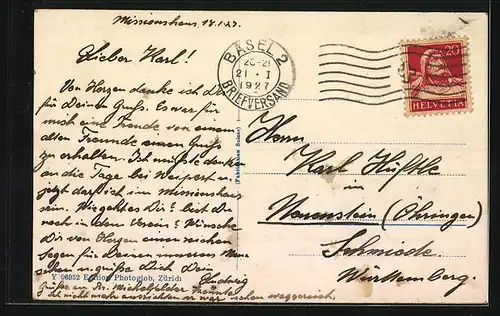 Missionshaus 18.1.27.
Lieber Karl!
Von Herzen danke ich Dir
für Deinen Gruß. Es war für
mich eine Freude von einem
alten Freunde einen Gruß
zu erhalten. Ich mußte denken
an die Tage bei Weipert u.
jetzt darf ich im Missionshaus
sein. Wie geht es Dir? bist Du
noch in dem Verein? Wünsche
Dir von Herzen einen reichen
Segen für Deinen inneren Men-
schen u. grüße Dich Dein
Ludwig
Y 06952 Edition Photoglob, Zürich
Grüße an Br. Michelfelder
ist nicht mehr war schon weggereist.
BASEL 2
20-21
21. I
1927
BRIEFVERSAND
20
HELVETIA
Herrn
Karl Küftle
in
Neuenstein (Öhringen)
Schmiede
Württemberg.